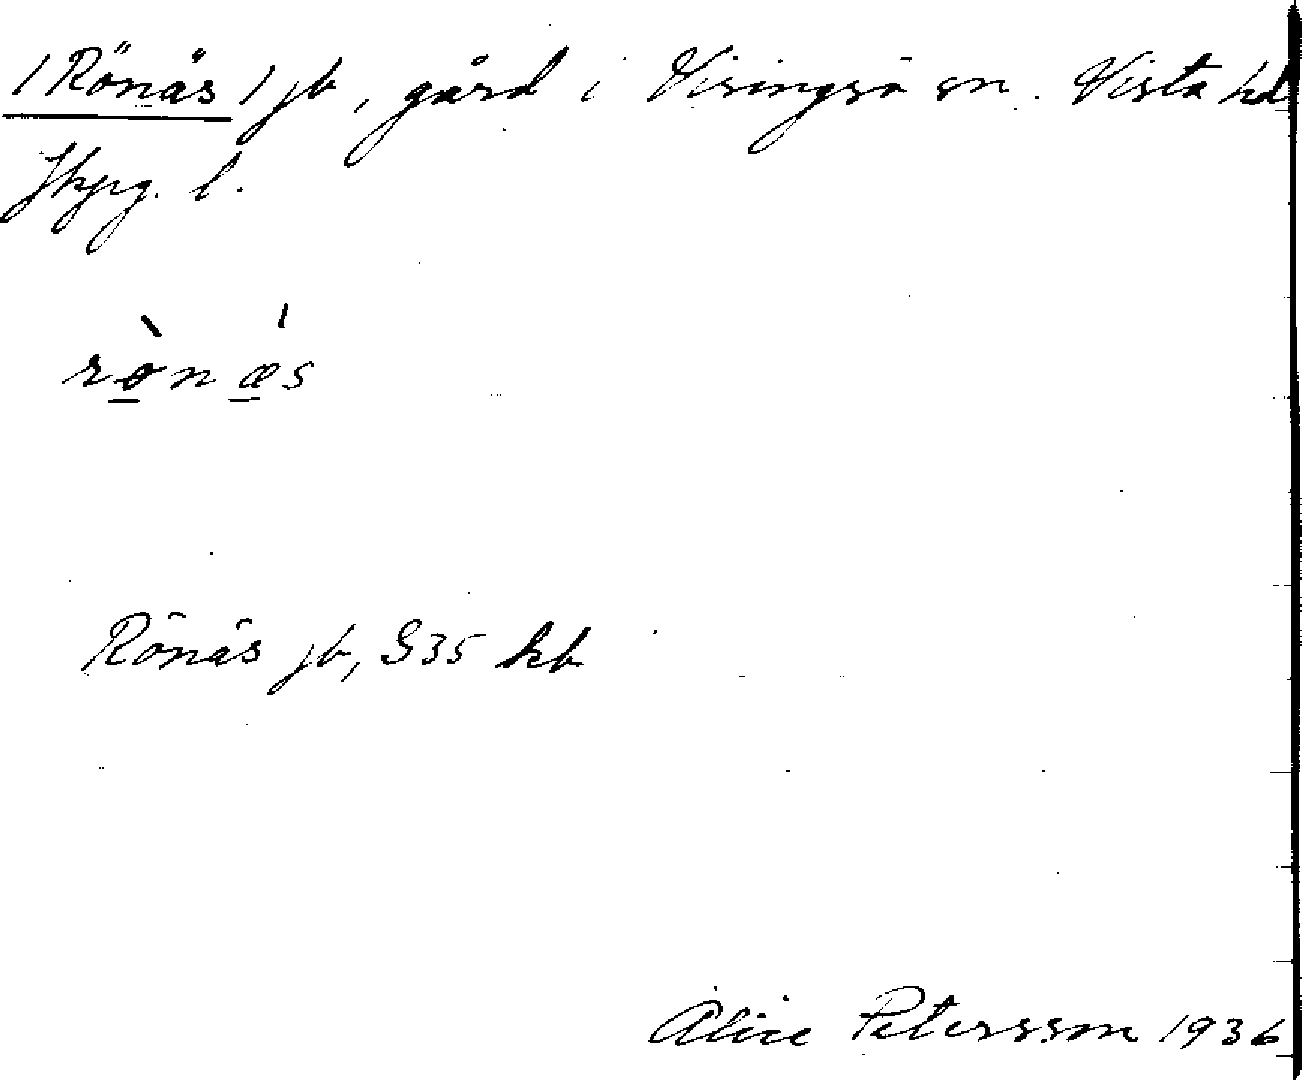 /Rönäs/ jb, gård i Visingsö sn. Vista hd
Jkpg. l.
rø̀nǽs
Rönäs jb, S35 kb
Alice Petersson 1936